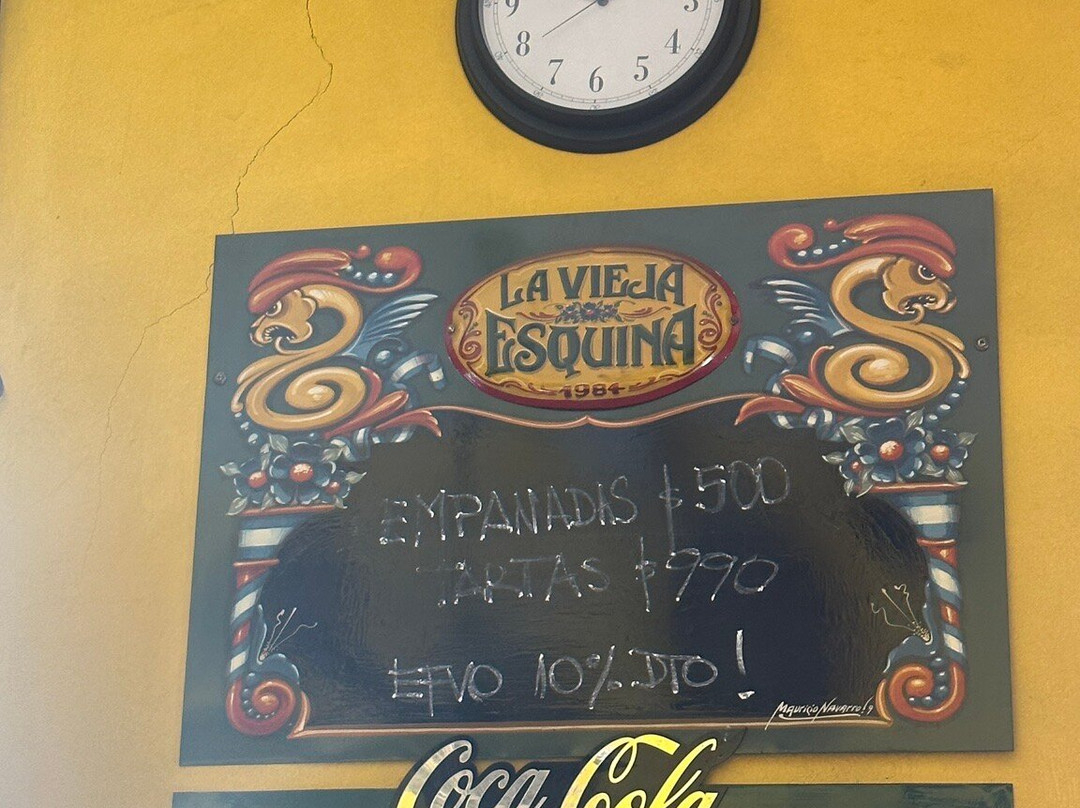 9 8 7 6 5 4 3
LA VIEJA
ESQUINA
1984
EMPANADAS $500
TARTAS $990
EFVO 10% DTO!
Mauricio Navarro! 9
Coca Cola